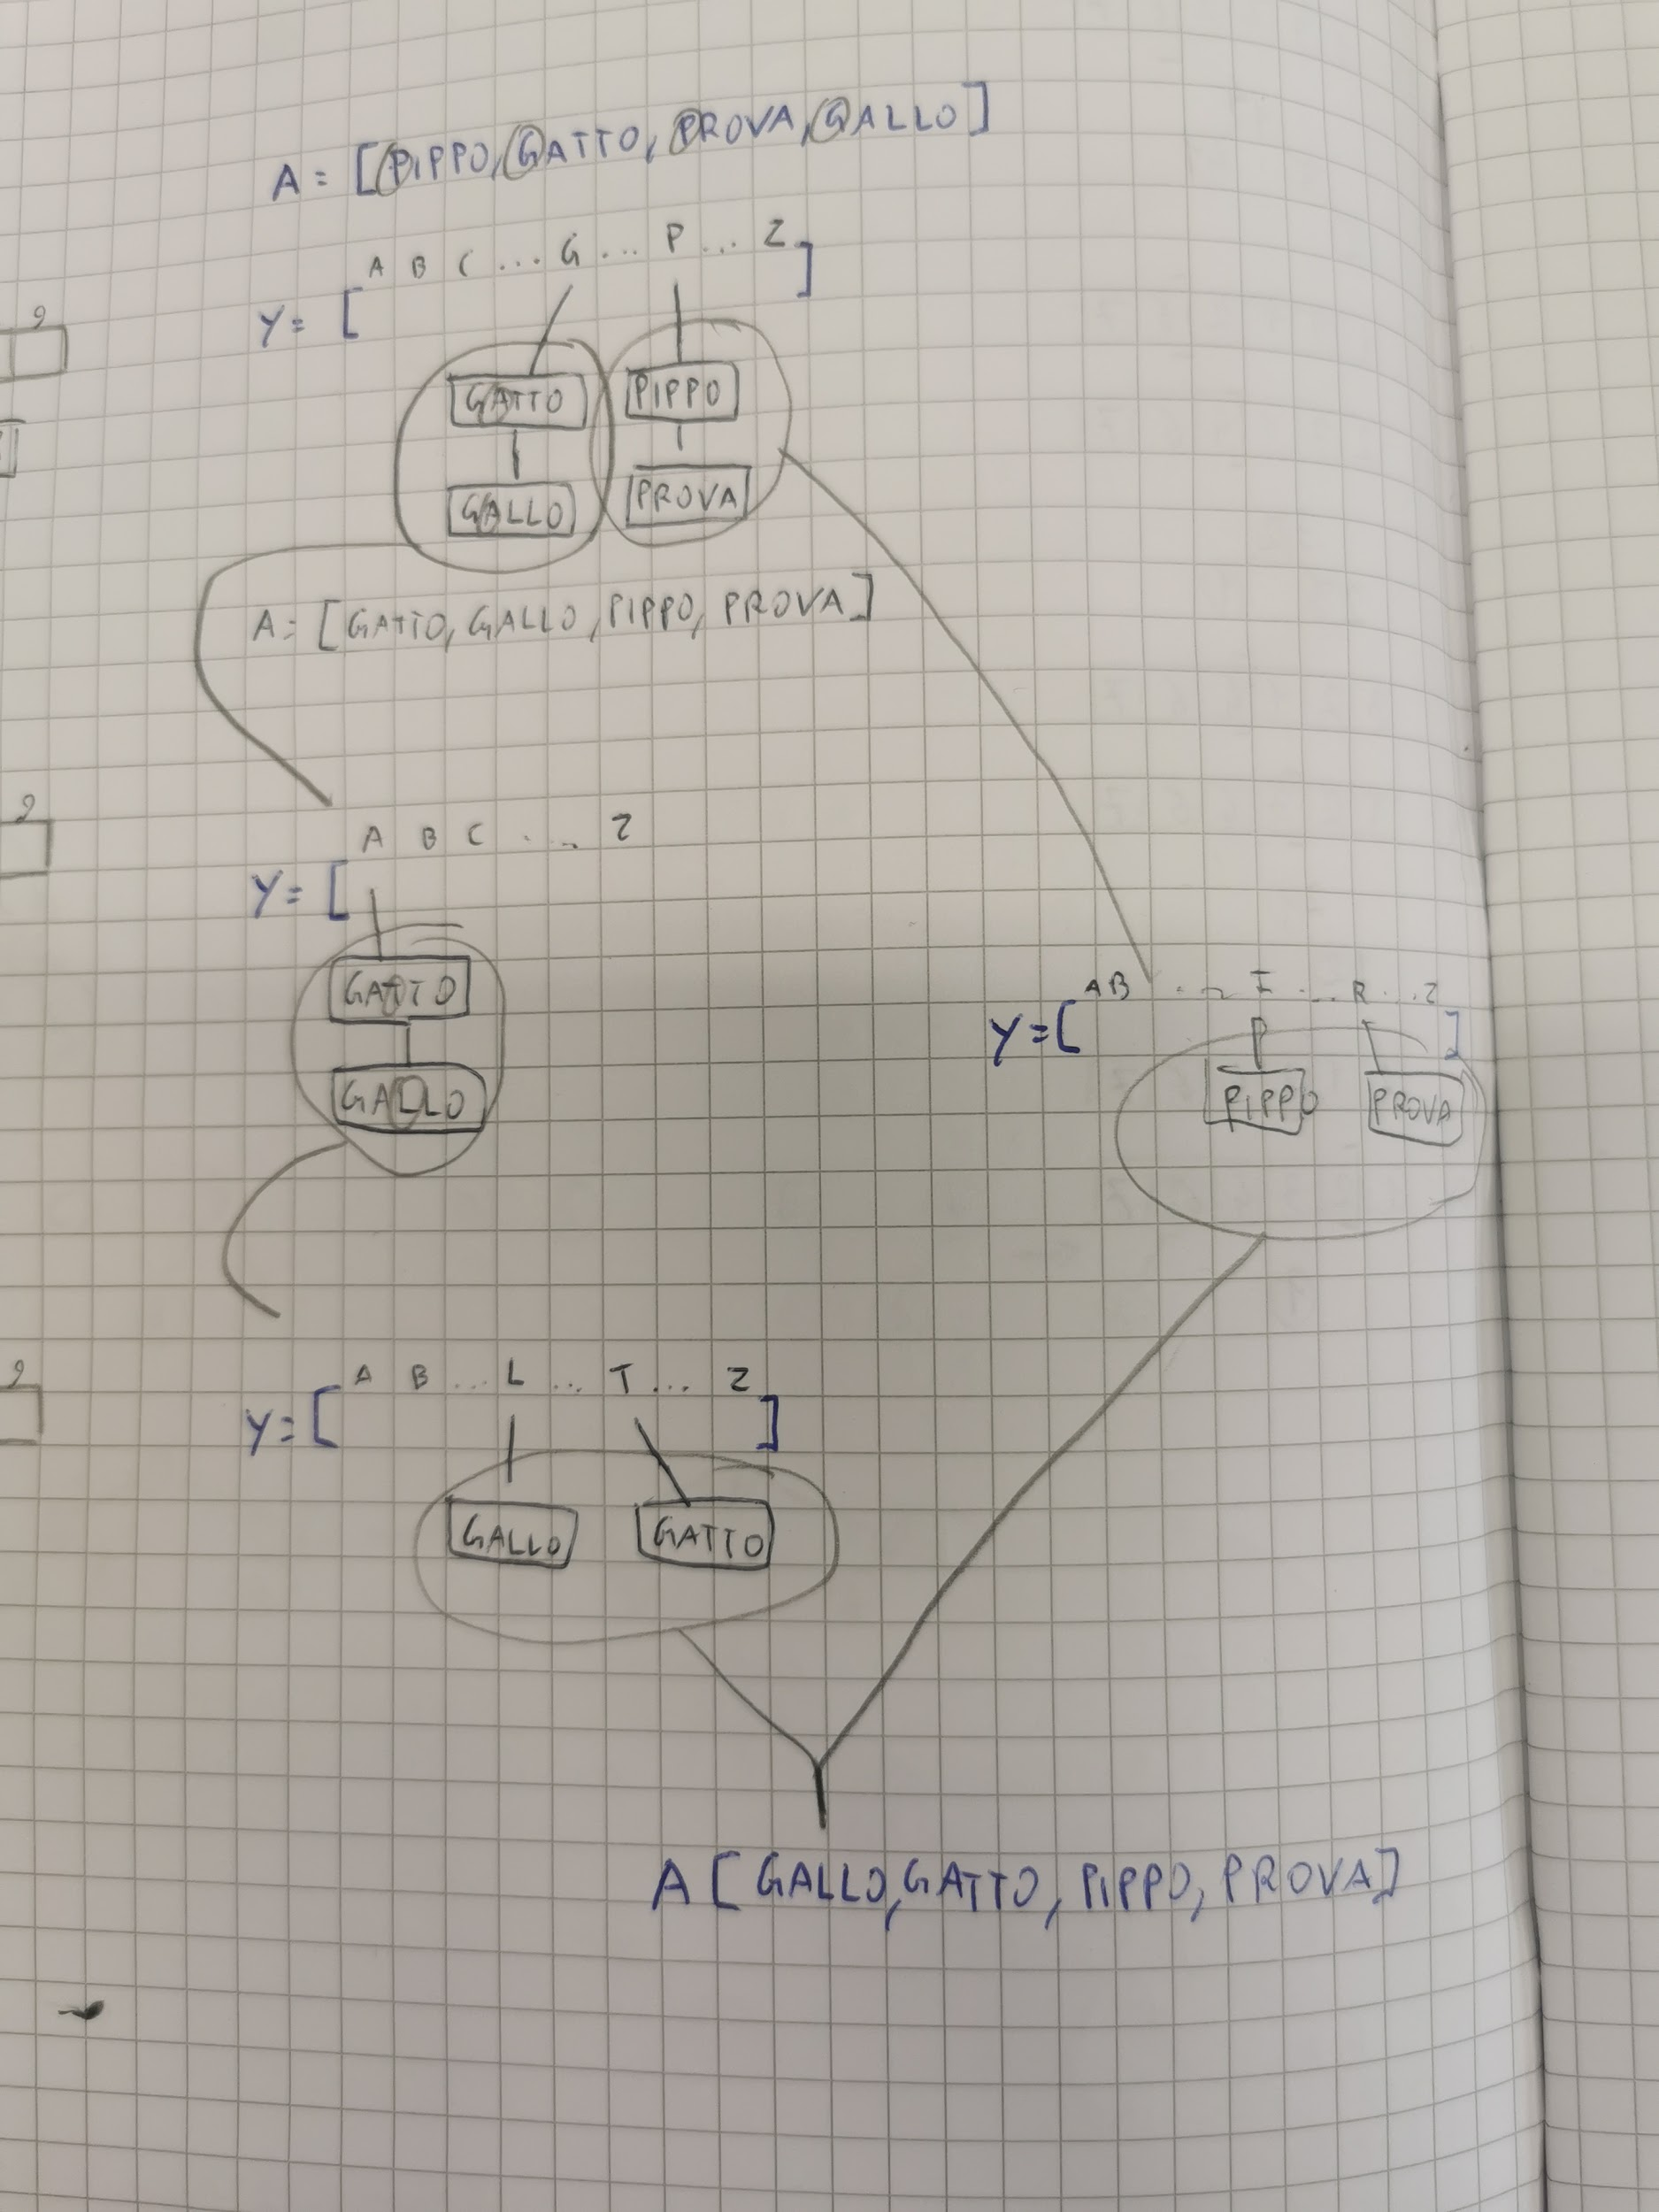 A = [PIPPO, GATTO, PROVA, GALLO]
A B C ... G ... P ... Z
Y = [ ]
9
GATTO PIPPO
GALLO PROVA
A = [GATTO, GALLO, PIPPO, PROVA]
9
A B C ... Z
Y = [
GATTO
GALLO
A B ... I ... R ... Z
Y = [ ]
PIPPO PROVA
9
A B ... L ... T ... Z
Y = [ ]
GALLO GATTO
A [GALLO, GATTO, PIPPO, PROVA]